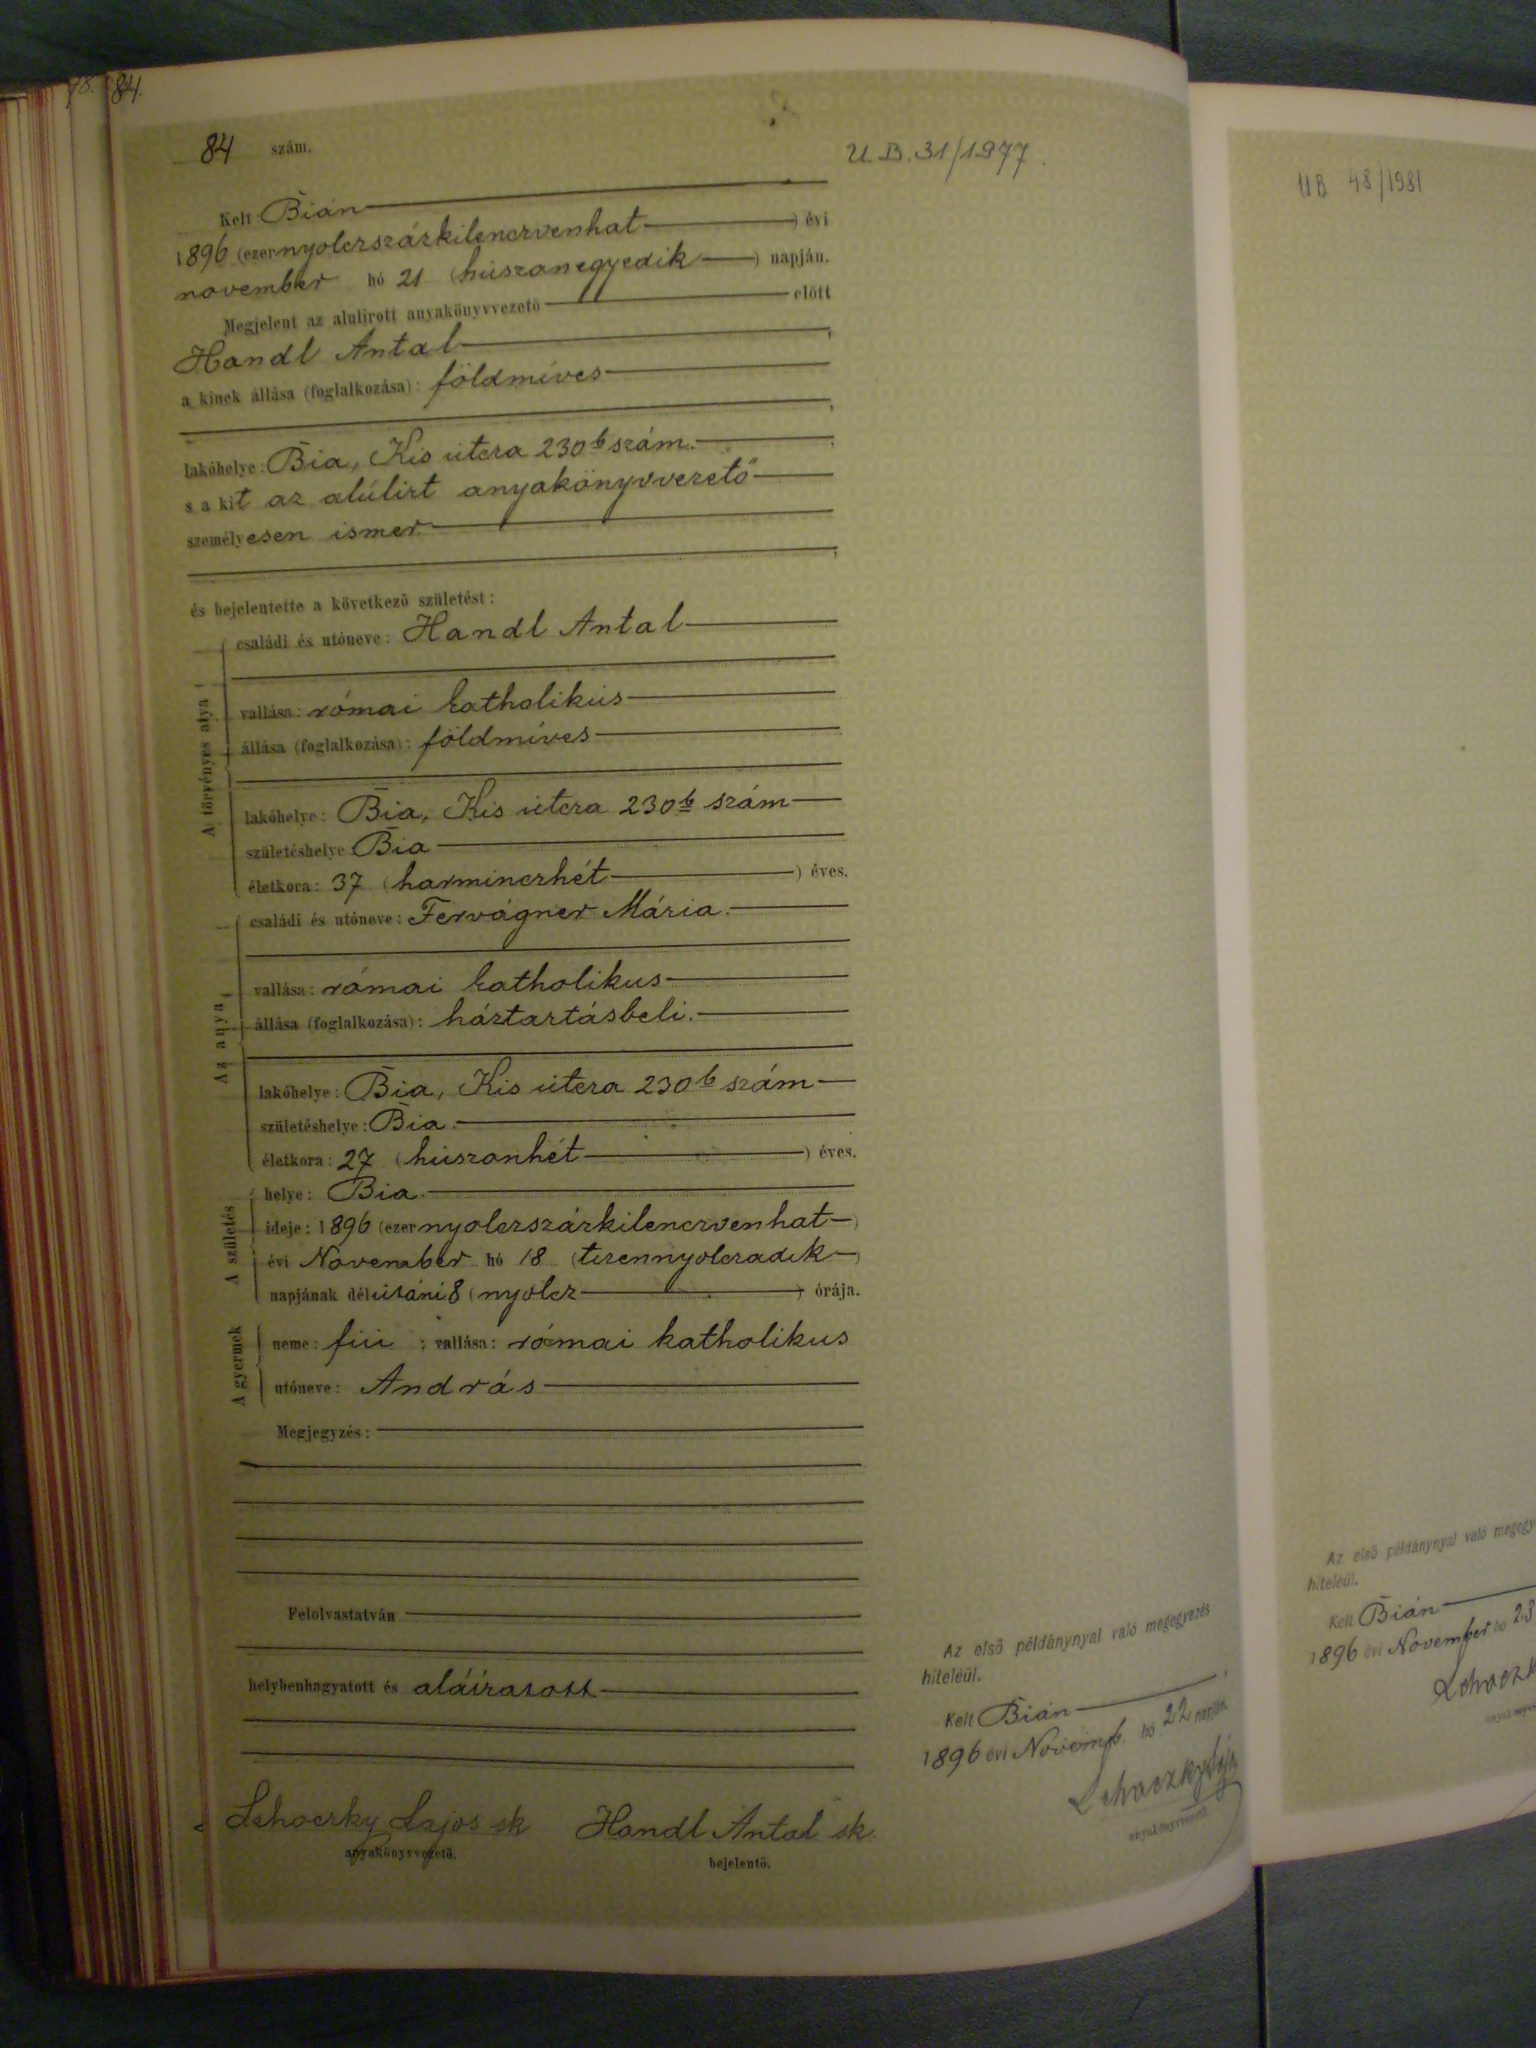 78. 84.
84 szám.
U B. 31/1977.
Kelt: Bián
1896 (ezernyolczszázkilenczvenhat) évi
november hó 21 (huszonegyedik) napján.
Megjelent az alulírott anyakönyvvezető előtt
Handl Antal,
a kinek állása (foglalkozása): földmíves
,
lakóhelye: Bia, Kis utcza 230 b szám.,
s a kit az alúlirt anyakönyvvezető
személyesen ismer.
,
és bejelentette a következő születést:
A törvényes atya
családi és utóneve: Handl Antal
vallása: római katholikus
állása (foglalkozása): földmíves
lakóhelye: Bia, Kis utcza 230 b szám
születéshelye Bia
életkora: 37 (harminczhét) éves.
Az anya
családi és utóneve: Fervágner Mária.
vallása: római katholikus
állása (foglalkozása): háztartásbeli.
lakóhelye: Bia, Kis utcza 230 b szám
születéshelye: Bia.
életkora: 27 (huszonhét) éves.
A születés
helye: Bia.
ideje: 1896 (ezernyolczszázkilenczvenhat)
évi November hó 18 (tizennyolczadik)
napjának délutáni 8 (nyolcz) órája.
A gyermek
neme: fiu; vallása: római katholikus
utóneve: András
Megjegyzés:
Felolvastatván
helybenhagyatott és aláíratott
Lehoczky Lajos sk Handl Antal sk.
anyakönyvvezető. bejelentő.
Az első példánynyal való megegyezés
hiteléül.
Kelt Bián,
1896 évi Novemb. hó 22 napján.
anyakönyvvezető.
UB 48/1981
Az első példánynyal való
hiteléül.
Kelt Bián
1896 évi November hó 23